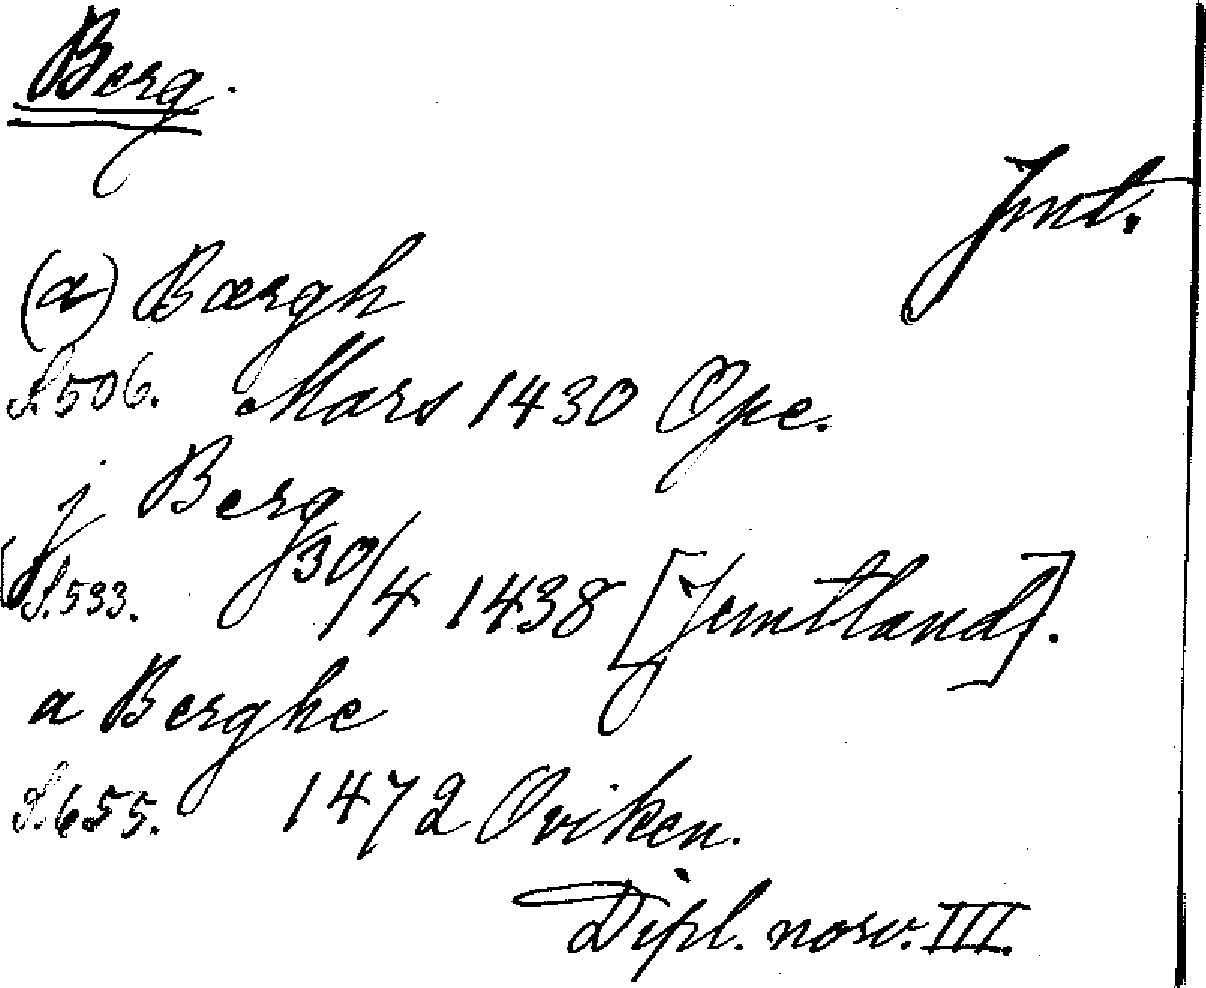 Berg.
Jmt.
(a) Bærgh
S. 506. Mars 1430 Ope.
j Berg
S. 533. 30/4 1438 [Jemtland].
a Berghe
S. 655. 1472 Oviken.
Dipl. norv. III.